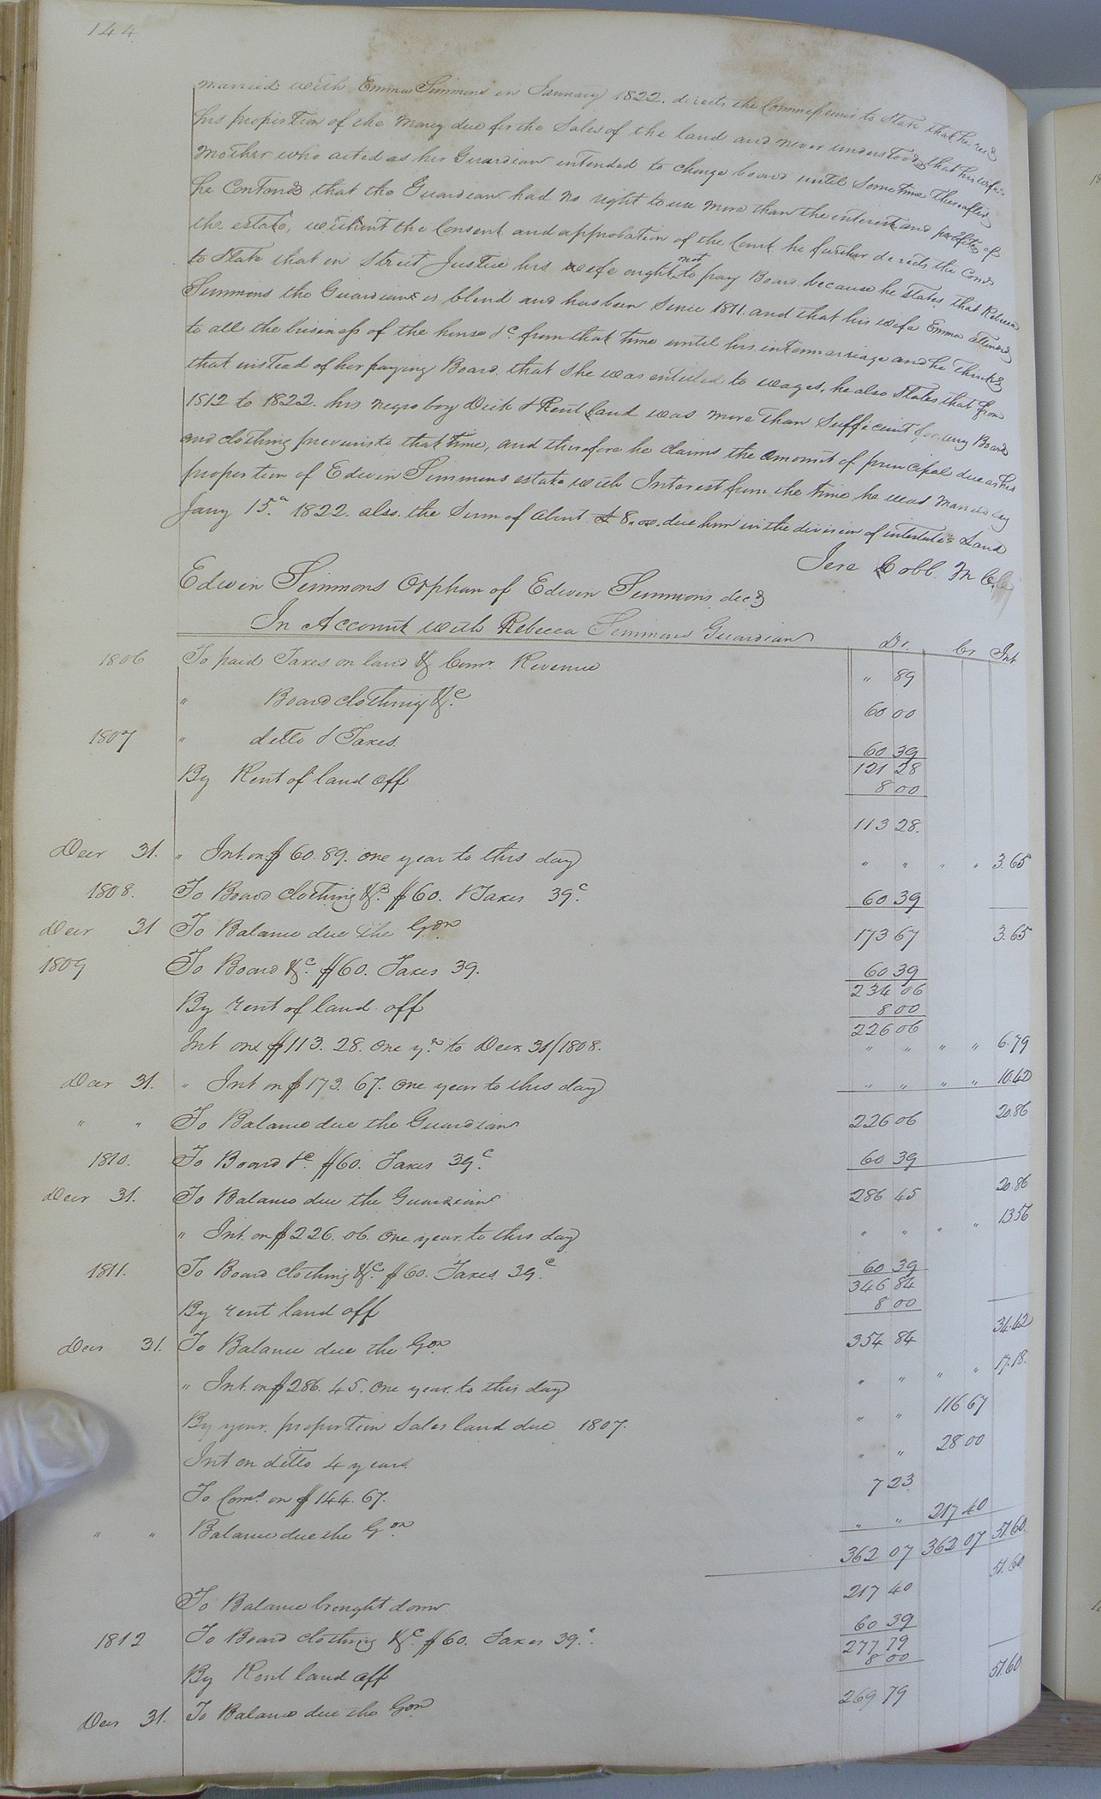 144
married with Emma Simmons in January 1822. directs the Commissioner to State that he recd
his proportion of the money due for the Sales of the land and never understood, that his wifes
Mother who acted as his Guardian intended to charge board until Sometime thereafter,
he Contends that the Guardian had no right to use more than the interest and profits of
the estate, without the Consent and approbation of the Court he further directs the Comr
to State that in Strict Justice his wife ought not to pay Board because he states that Rebecca
Simmons the Guardian is blind and has been Since 1811. and that his wife Emma attended
to all the business of the house &c. from that time until his intermarriage and he thinks
that instead of her paying Board, that she was entitled to wages, he also States that from
1812 to 1822. his negro boy Dick & Rent land was more than Sufficient for any Board
and clothing previous to that time, and therefore he claims the amount of principal due as his
proportion of Edwin Simmons estate with Interest from the time he was married say
Jany 15th 1822. also the Sum of about $8.00. due him in the division of intestates Land
Jere Cobb. M C.C
Edwin Simmons Orphan of Edwin Simmons, decd
In Account with Rebecca Simmons Guardian Dr. Cr Int
1806 To paid Taxes on land & Comr. Revenue " 89
" Board clothing &c. 60 00
1807 " ditto & Taxes. 60 39
121 28
By Rent of land off 8 00
113 28.
Decr 31. " Int. on $60.89. one year to this day " " " " 3.65
1808. To Board clothing &c. $60. & Taxes 39c. 60 39
Decr 31 To Balance due the Gdn 173 67 3.65
1809 To Board &c. $60. Taxes 39. 60 39
234 06
By rent of land off 8 00
226 06
Int one $113.28. one yr. to Decr 31/1808. " " " " 6.79
Decr 31. " Int on $173.67. one year to this day " " " " 10.42
" " To Balance due the Guardian 226 06 20.86
1810. To Board &c. $60. Taxes 39c. 60 39
Decr 31. To Balance due the Guardian 286 45 20.86
" Int. on $226.06. one year to this day " " " " 13.56
1811. To Board clothing &c. $60. Taxes 39c. 60 39
346 84
By rent land off 8 00
Decr 31. To Balance due the Gdn 354 84 34.42
" Int. on $286.45. one year to this day " " " " 17.18.
By your proportion Sales land due 1807. " " 116 67
Int on ditto 4 years " " 28 00
To Coms. on $144.67. 7 23
" " Balance due the Gdn. " " 217 40
362 07 362 07 51.60
To Balance brought down 217 40 51.60
1812 To Board clothing &c. $60. Taxes 39c. 60 39
277 79
By Rent land off 8 00
Decr 31. To Balance due the Gdn 269 79 51.60